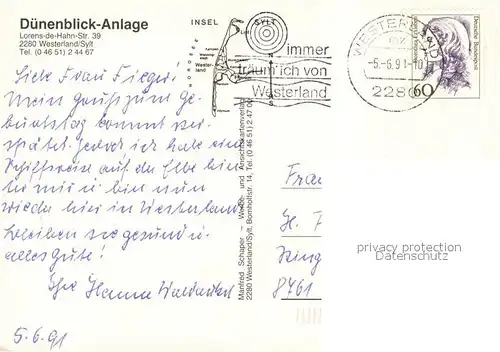 Dünenblick-Anlage
Lorens-de-Hahn-Str. 39
2280 Westerland/Sylt
Tel. (0 46 51) 2 44 67
INSEL SYLT
NORDSEE
List
Westerland
immer
träum ich von
Westerland
WESTERLAND
-5.-6.91-10
2280
60
Deutsche Bundespost
Liebe Frau
Mein Gruß zum Ge-
burtstag kommt ver-
spätet. Jedoch ich habe eine
Schiffsreise auf der Elbe hin-
ter mir u. bin nun
wieder hier in Westerland
bleiben sie gesund u.
alles Gute!
Ihre Hanne
5.6.91
Manfred Schaper – Werbe- und Ansichtskartenverlag
2280 Westerland/Sylt, Bomhoffstr. 14, Tel. (0 46 51) 2 47 00
Frau
H. F
8761
privacy protection
Datenschutz